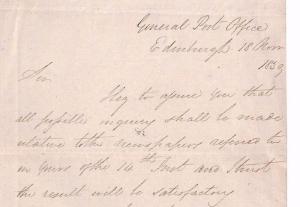 General Post Office
Edinburgh 18 Nov
1839
Sir
I beg to assure you that
all possible inquiry shall be made
relative to the newspapers referred to
in yours of the 14th Inst and I trust
the result will be satisfactory